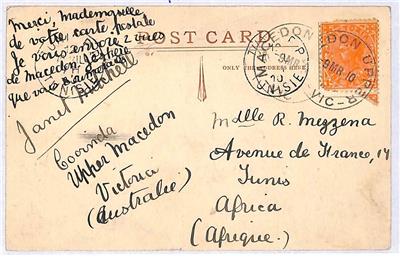 Merci, Mademoiselle
de votre carte postale
Je vous envoie 2 vues
de Macedon. J'espère
que vous
Janet Mitchell
POST CARD
ONLY THE ADDRESS
MACEDON UPPER
9 MR 10
VIC
TUNISIE
Coorinda
Upper Macedon
Victoria
(Australie)
Mdlle R. Mezzena
Avenue de France, 14
Tunis
Africa
(Afrique)